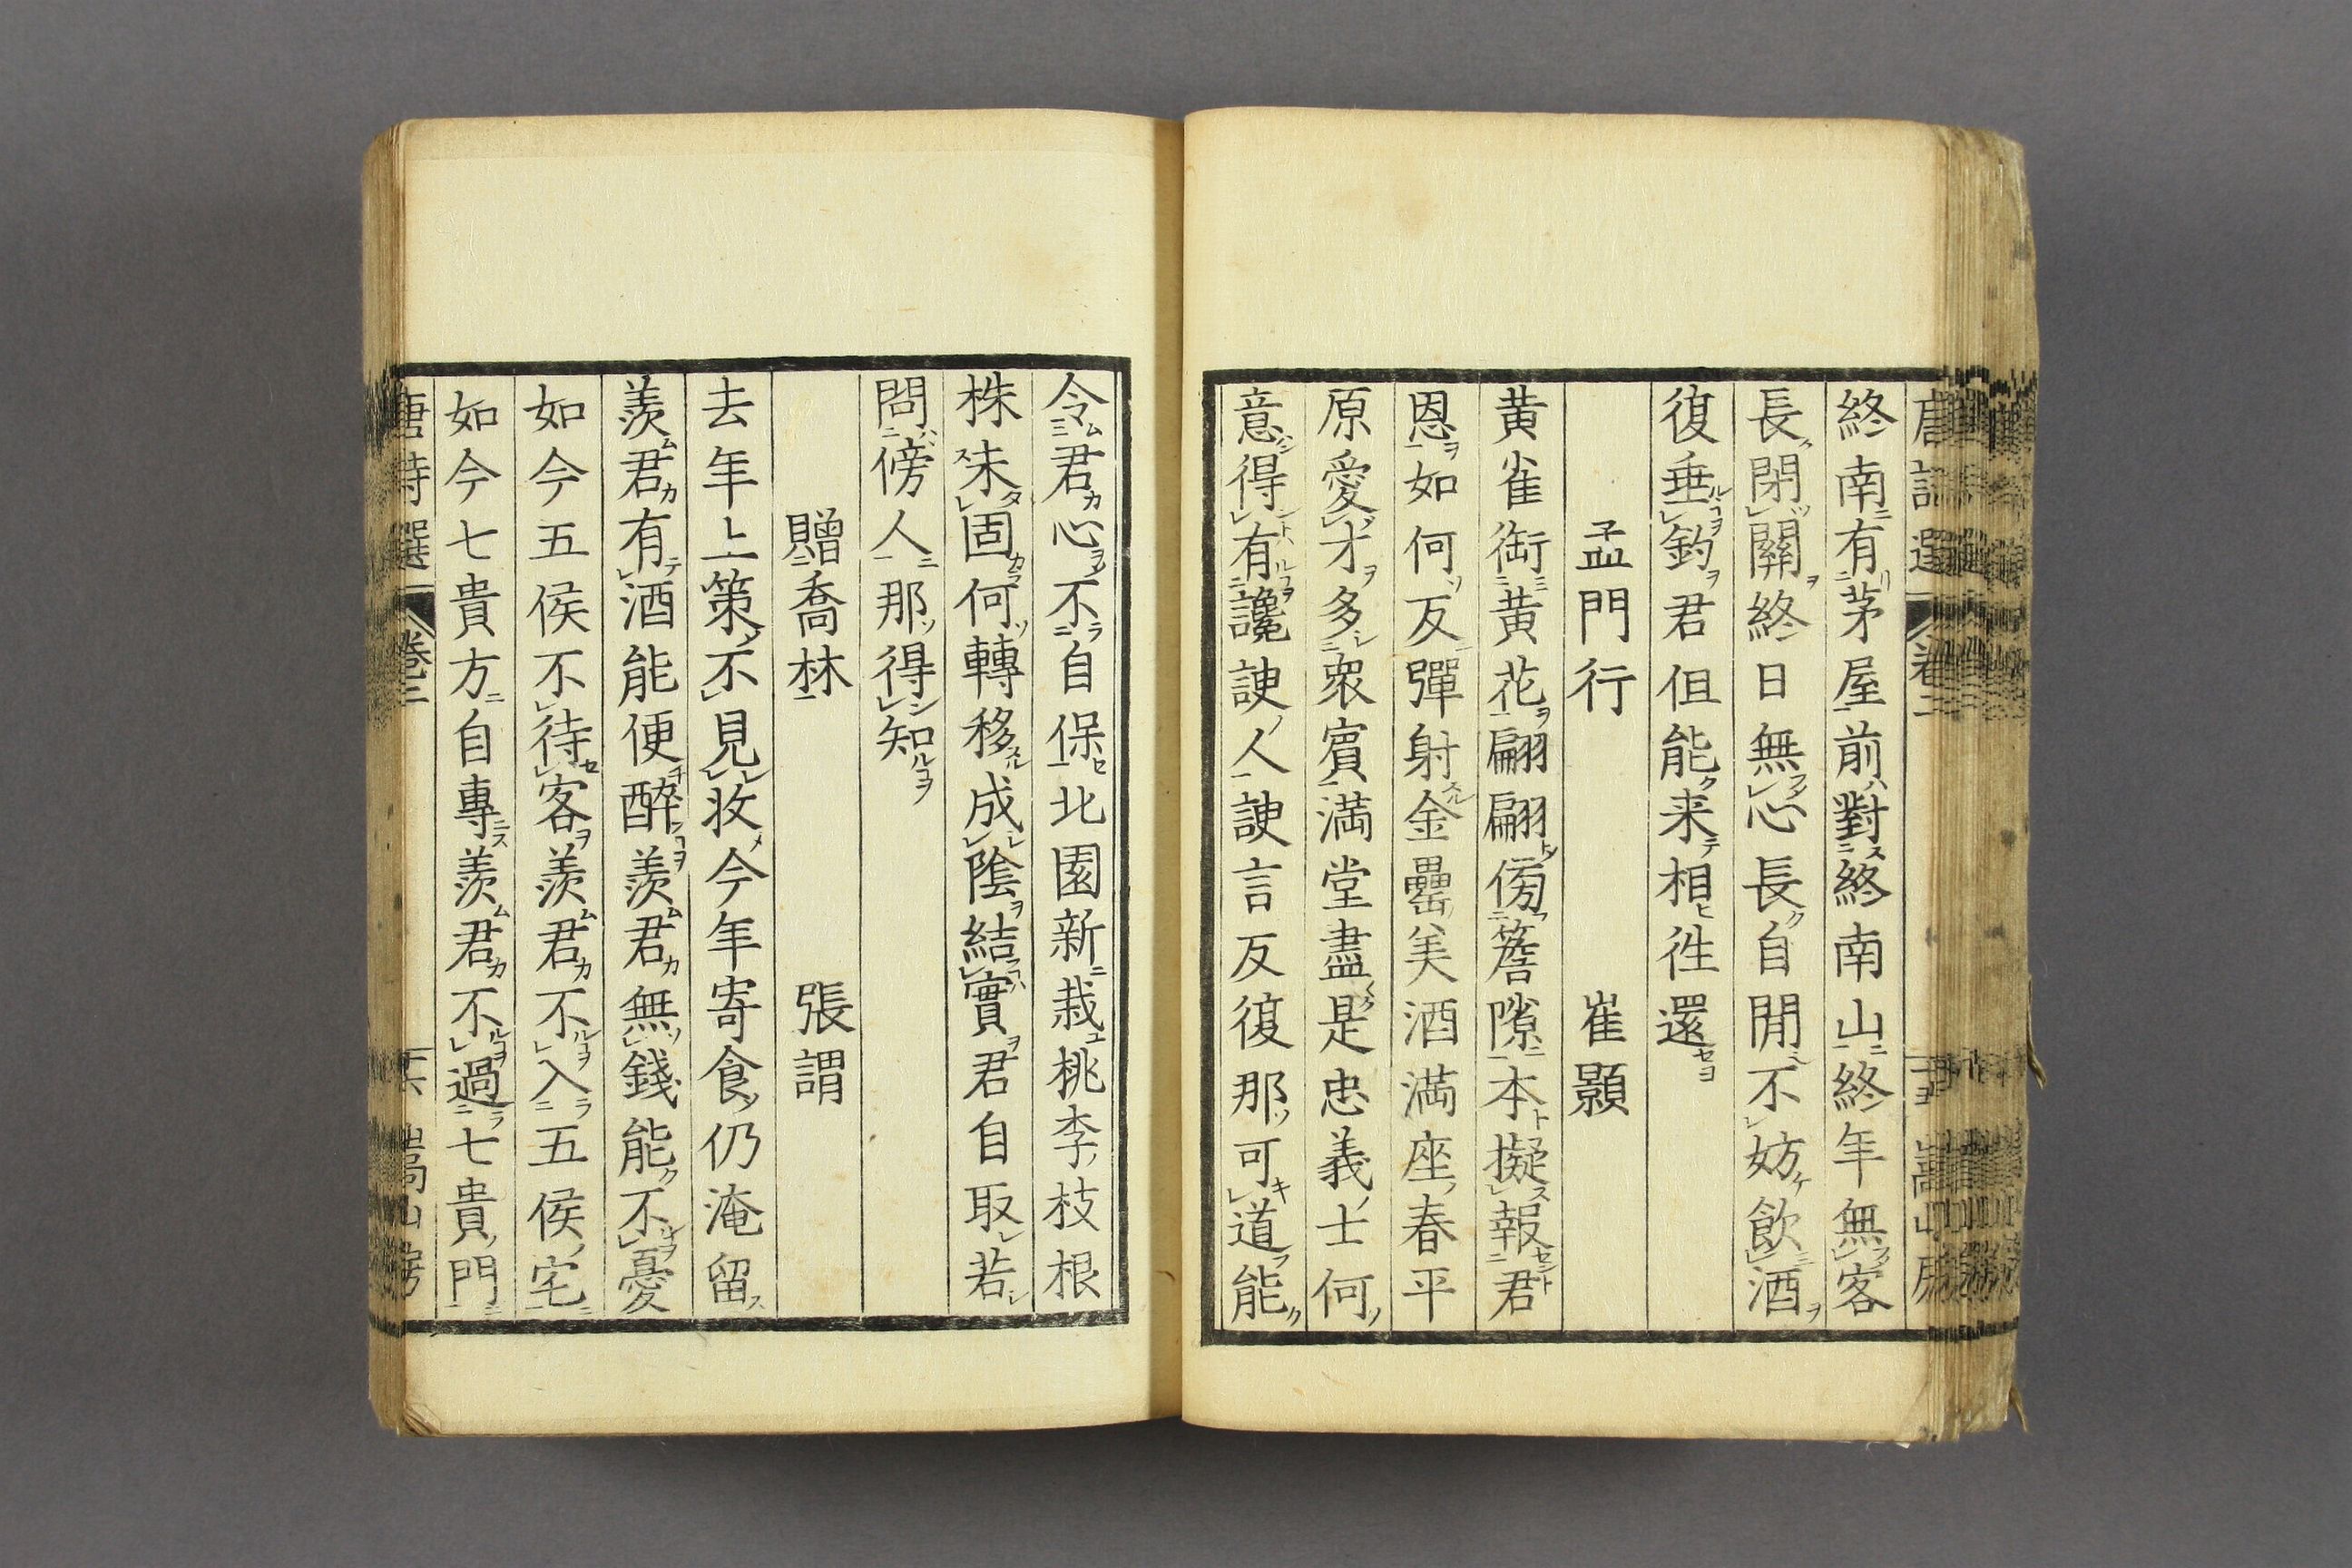 終南有茅屋前對終南山終年無客
長閉關終日無心長自閒不妨飲酒
復垂釣君但能来相往還
孟門行 崔顥
黄雀銜黄花翩翩傍簷隙本擬報君
恩如何反彈射金罍美酒満座春平
原愛才多衆賓満堂盡是忠義士何
意得有讒諛人諛言反復那可道能
令君心不自保北園新栽桃李枝根
株未固何轉移成陰結實君自取若
問傍人那得知
贈喬林 張謂
去年上策不見收今年寄食仍淹留
羨君有酒能便醉羨君無錢能不憂
如今五侯不待客羨君不入五侯宅
如今七貴方自專羨君不過七貴門
唐詩選 卷二